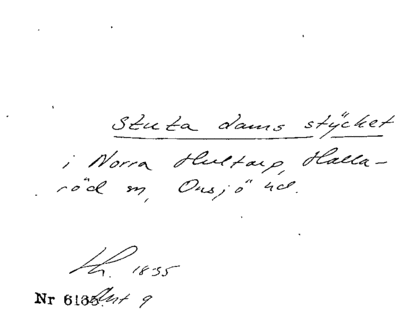 Stuta dams stÿcket
i Norra Hultarp, Halla-
röd sn, Onsjö hd.
Lh. 1835
Nr 6135. Akt 9